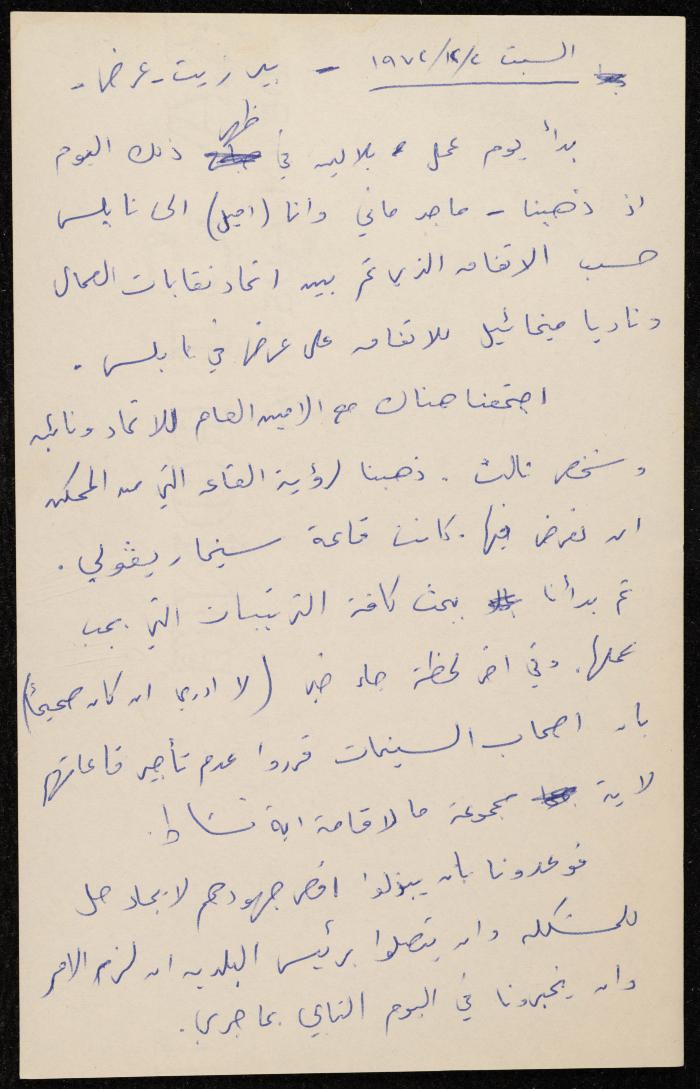 السبت ١٩٧٤/١٢/٧ - بير زيت - عرض -
بدأ يوم عمل بلالين في ظهر ذلك اليوم
اذ ذهبنا - ماجد ماني وانا (اميل) الى نابلس
حسب الاتفاق الذي تم بين اتحاد نقابات العمال
وناديا ميخائيل للاتفاق على عرض في نابلس .
اجتمعنا هناك مع الامين العام للاتحاد ونائبه
وشخص ثالث . ذهبنا لرؤية القاعة التي من الممكن
ان نعرض فيها . كانت قاعة سينما ريڤولي .
ثم بدأنا ببحث كافة الترتيبات التي يجب
عملها. وفي اخر لحظة جاء خبر (لا ادري ان كان صحيحاً)
بان اصحاب السينمات قرروا عدم تأجير قاعاتهم
لاية مجموعة ما لاقامة اية نشاط.
فوعدونا بان يبذلوا اقصى جهودهم لايجاد حل
للمشكلة وان يتصلوا برئيس البلدية ان لزم الامر
وان يخبرونا في اليوم التالي بما جرى .